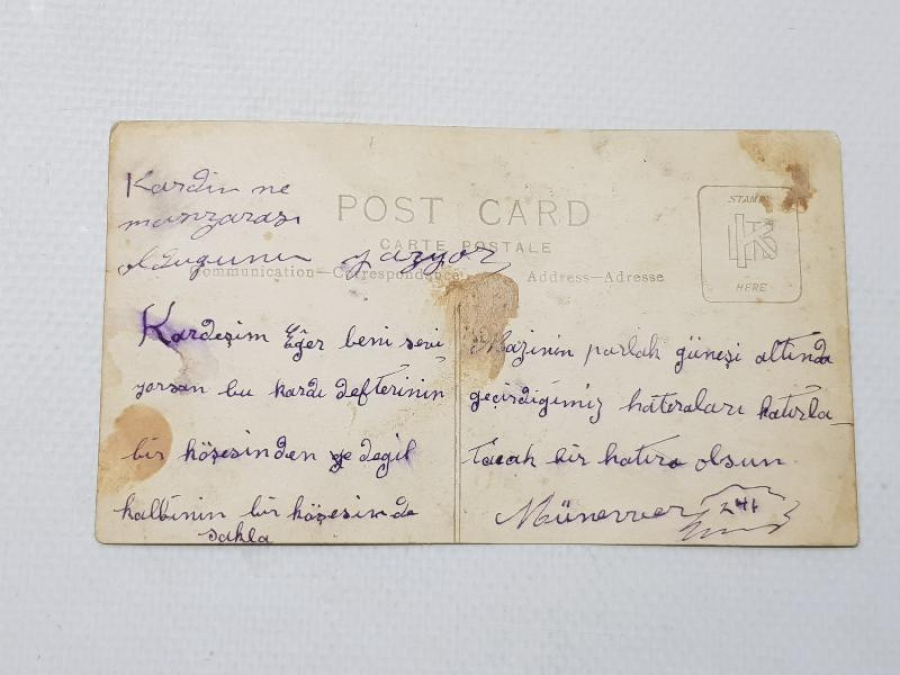 Kardin ne
manzarası
olduğunu yazıyor
POST CARD
CARTE POSTALE
Communication—Correspondance
Address—Adresse
STAMP
HERE
Kardeşim Eğer beni sevi
yorsan bu kardı defterinin
bir köşesinden degil
kalbinin bir köşesinde
sakla
Mazinin parlak güneşi altında
geçirdiğimiz hatıraları hatırla
tacak bir hatıra olsun
Münevver